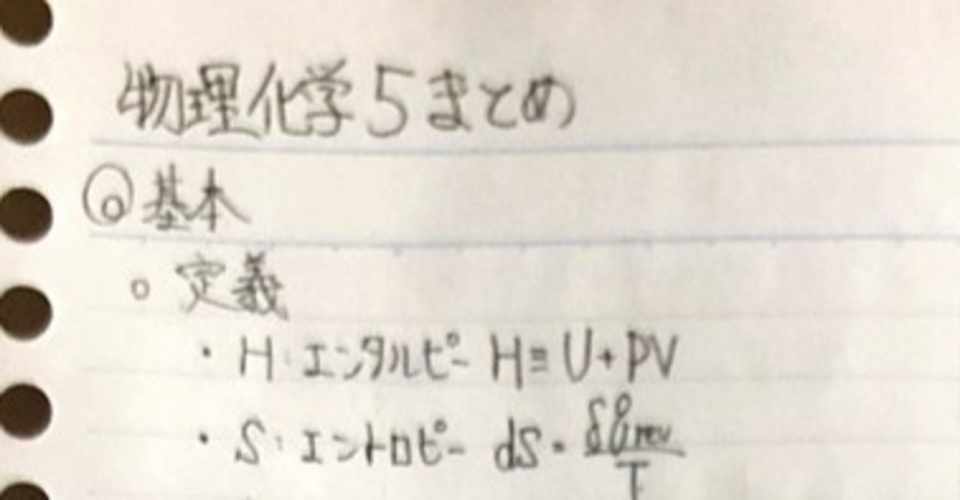 物理化学5まとめ
◎基本
○ 定義
・H:エンタルピー H≡U+PV
・S:エントロピー dS=δQrev/T